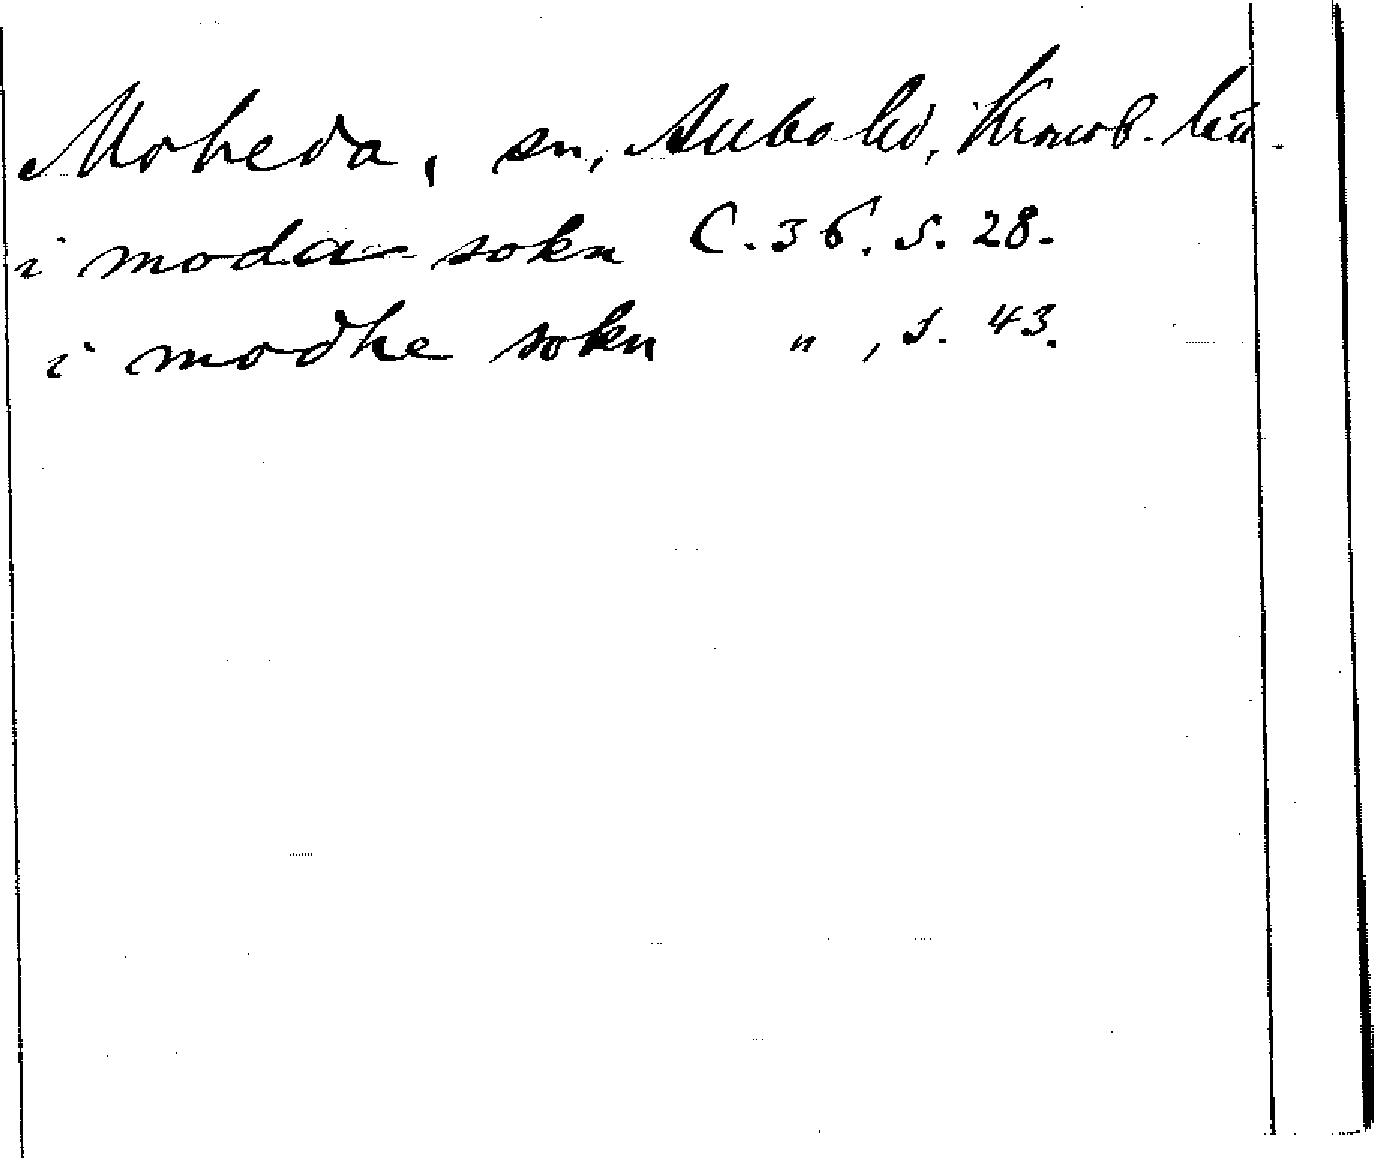 Moheda, sn, Allbo hd, Kronob. län.
i moda sokn C. 36. s. 28.
i modhe sokn " , s. 43.